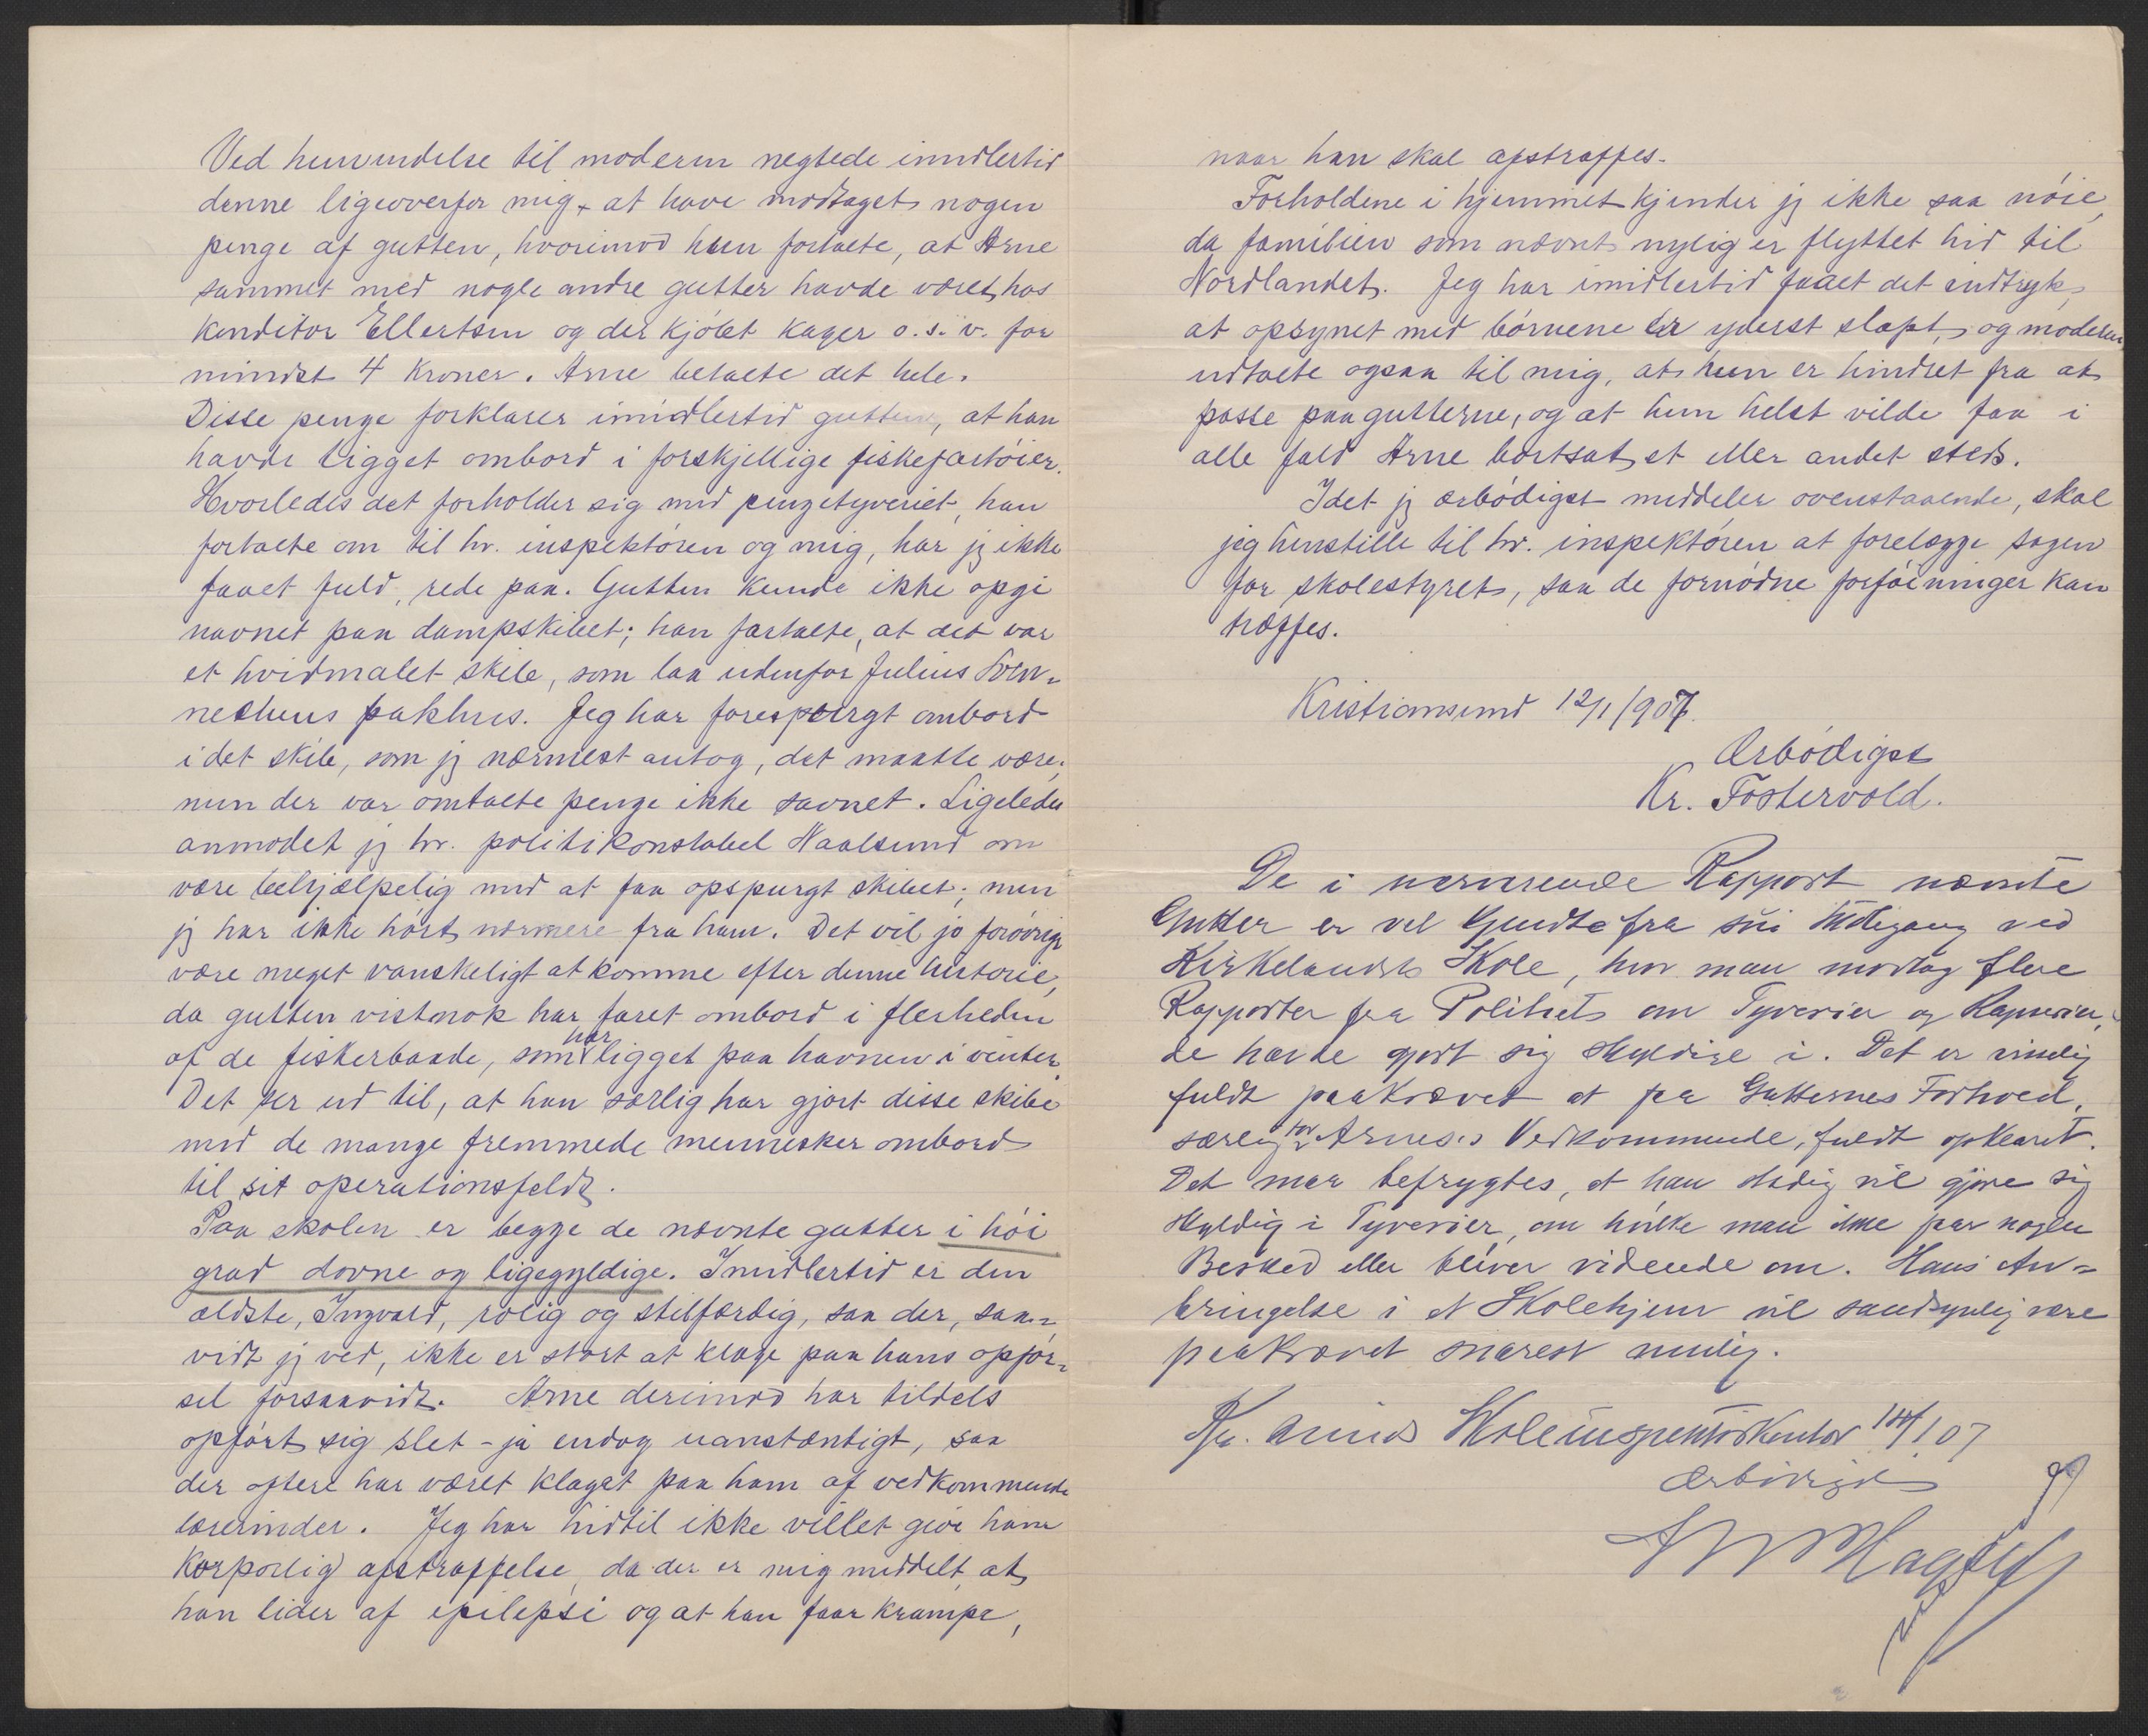 Ved henvendelse til moderen negtede imidlertid
denne ligeoverfor mig, at have modtaget nogen
penge af gutten, hvorimod hun fortalte, at Arne
sammet med nogle andre gutter havde været hos
konditor Ellertsen og der kjöbt kager o.s.v. for
mindst 4 kroner. Arne betalte det hele.
Disse penge forklarer imidlertid gutten, at han
havde tigget ombord i forskjellige fiskefartöier.
Hvorledes det forholder sig med pengetyveriet, han
fortalte om til hr. inspektören og mig, har jg ikke
faaet fuld rede paa. Gutten kunde ikke opgi
navnet paa dampskibet; han fortalte, at det var
et hvidmalet skib, som laa udenfor Julius
pakhus. Jeg har forespurgt ombord
i det skib, som jg nærmest antog, det maatte være;
men der var omtalte penge ikke savnet. Ligeledes
anmodet jg hr. politikonstabel Haalsund om
være behjælpelig med at faa opspurgt skibet; men
jg har ikke hört nærmere fra ham. Det vil jo forövrigt
være meget vanskeligt at komme efter denne historie,
da gutten vistnok har faret ombord i flerheden
af de fiskerbaade, som har ligget paa havnen i vinter.
Det ser ud til, at han særlig har gjort disse skibe
med de mange fremmede mennesker ombord
til sit operationsfeldt.
Paa skolen er begge de nævnte gutter i höi
grad dovne og ligegyldige. Imidlertid er den
ældste, Ingvald, rolig og stilfærdig, saa der, saa-
vidt jg ved, ikke er stort at klage paa hans opför-
sel forsaavidt. Arne derimod har tildels
opfört sig slet - ja endog uanstændigt, saa
der oftere har været klaget paa ham af vedkommende
lærerinder. Jeg har hidtil ikke villet give ham
korporlig afstraffelse, da der er mig meddelt, at
han lider af epilepsi og at han faar krampe,
naar han skal afstraffes.
Forholdene i hjemmet kjender jg ikke saa nöie,
da familien som nævnt nylig er flyttet hid til
Nordlandet. Jeg har imidlertid faaet det indtryk,
at opsynet med börnene er yderst slapt, og moderen
udtalte ogsaa til mig, at hun er hindret fra at
passe paa gutterne, og at hun helst vilde faa i
alle fald Arne bortsat et eller andet sted.
Idet jg ærbödigst meddeler ovenstaaende, skal
jeg henstille til hr. inspektören at forelægge sagen
for skolestyret, saa de fornödne forföininger kan
træffes.
Kristiansund 12/1 1907.
Ærbödigst
Kr. Fostervold.
De i nærværende Rapport nævnte
Gutter er vel kjendte fra sin Skolegang ved
Kirkelandets Skole, hvor man modtog flere
Rapporter fra Politiet om Tyverier og Rapserier,
de havde gjort sig skyldige i. Det er visselig
fuldt paakrævet at faa Gutternes Forhold,
særlig for Arnes's Vedkommende, fuldt opklaret.
Det maa befrygtes, at han stadig vil gjøre sig
skyldig i Tyverier, om hvilke man ikke faar nogen
Besked eller bliver vidende om. Hans An-
bringelse i et Skolehjem vil sandsynlig være
paakrævet snarest mulig.
Kr.sunds Skoleinspektørkontor 14/1 07
Ærbødigst